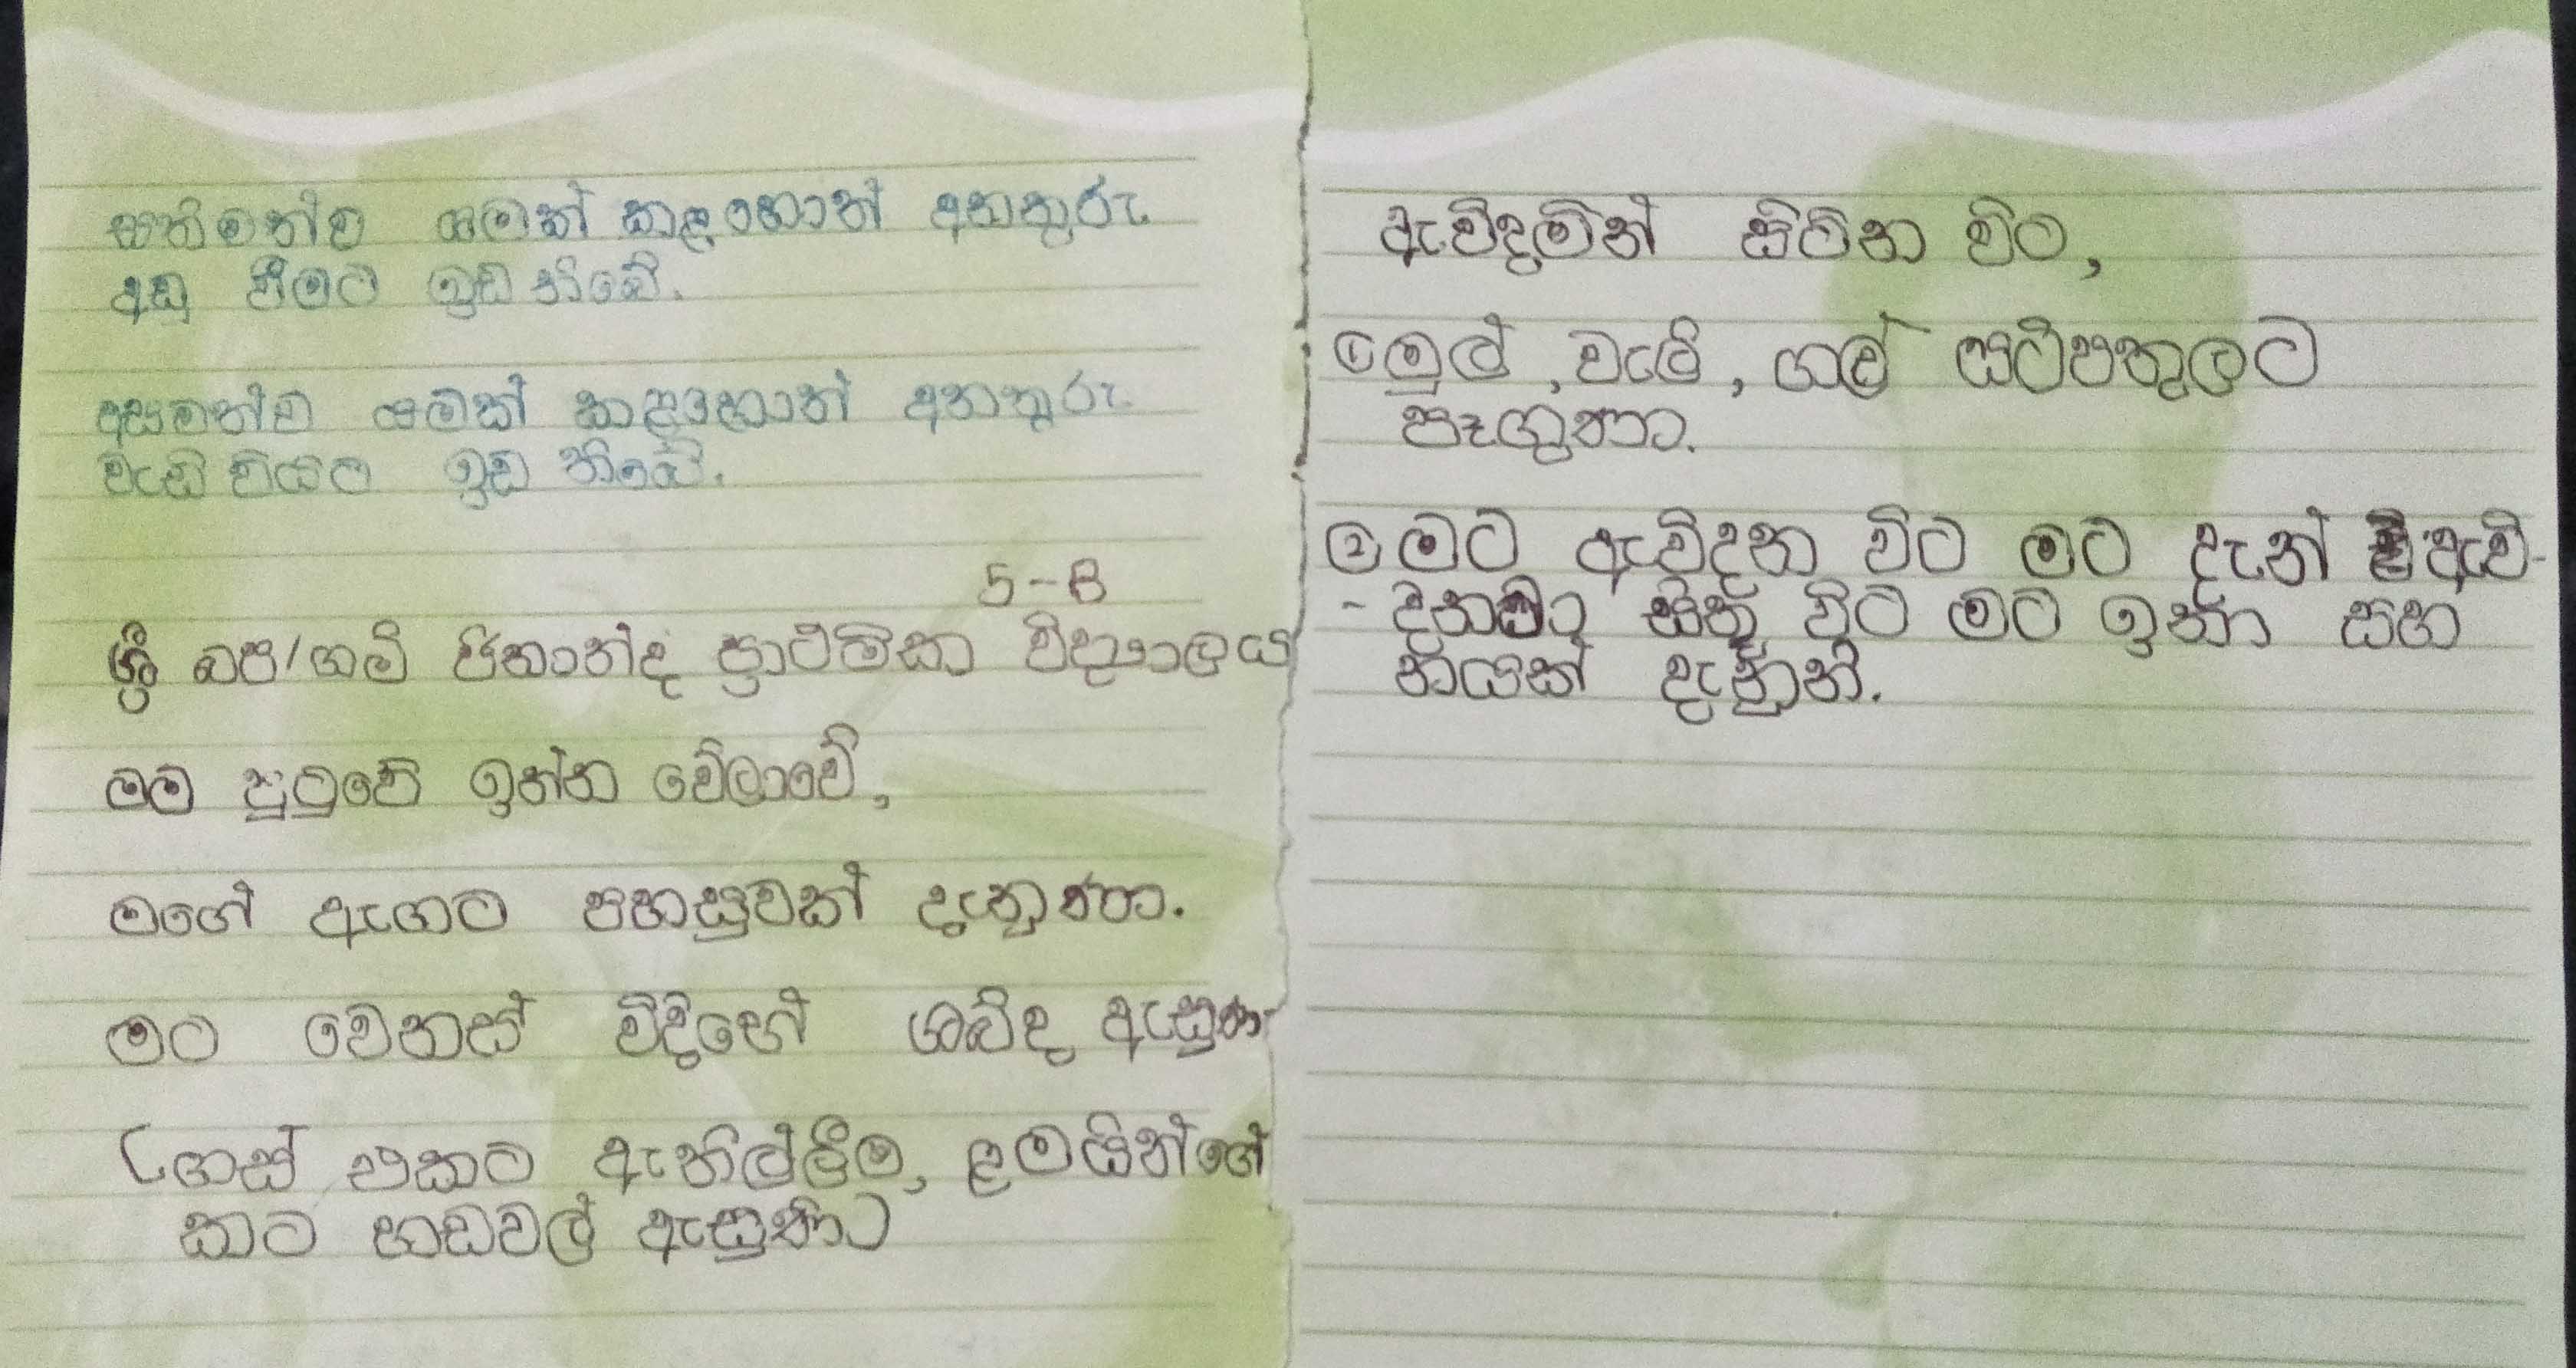 සතිමත්ව යමක් කළහොත් අනතුරු
අඩු වීමට ඉඩ තිබේ.
අසමත්ව යමක් කළහොත් අනතුරු
වැඩි වියට ඉඩ තිබේ.
5-B
ශ්‍රී බප/ගම් ජිනානන්ද ප්‍රාථමික විද්‍යාලය
මම පුටුවේ ඉන්න වේලාවේ,
මගේ ඇඟට පහසුවක් දැනුණා.
මට වෙනස් විදිහේ ශබ්ද ඇසුණා
(ගස් එකට ඇතිල්ලීම, ළමයින්ගේ
කට හඩවල් ඇසුණා)
ඇවිදමින් සිටින විට,
① මුල්, වැලි, ගල් යටිපතුලට
පෑගුණා.
② මට ඇවිදින විට මට දැන් ඇවි-
- දිනවා සිතූ විට මට ඉනා සහ
තියක් දැනුනි.